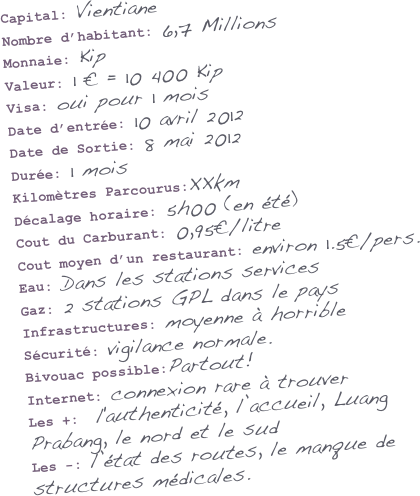 Capital: Vientiane
Nombre d'habitant: 6,7 Millions
Monnaie: Kip
Valeur: 1 € = 10 400 Kip
Visa: oui pour 1 mois
Date d'entrée: 10 avril 2012
Date de Sortie: 8 mai 2012
Durée: 1 mois
Kilomètres Parcourus:XXkm
Décalage horaire: 5h00 (en été)
Cout du Carburant: 0,95€/litre
Cout moyen d'un restaurant: environ 1.5€/pers.
Eau: Dans les stations services
Gaz: 2 stations GPL dans le pays
Infrastructures: moyenne à horrible
Sécurité: vigilance normale.
Bivouac possible:Partout!
Internet: connexion rare à trouver
Les +: l'authenticité, l'accueil, Luang
Prabang, le nord et le sud
Les -: l'état des routes, le manque de
structures médicales.